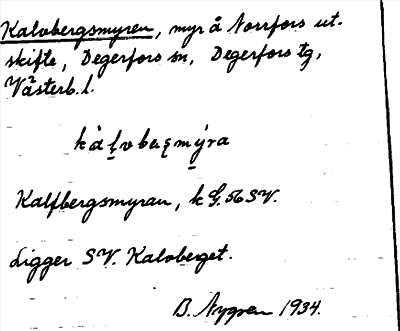 Kalvbergsmyren, myr å Norrfors ut-
skifte, Degerfors sn, Degerfors tg,
Västerb. l.
kàḷvbaṣmýra
Kalfbergsmyran, k G. 56 SV.
Ligger SV. Kalvberget.
B. Nygren 1934.